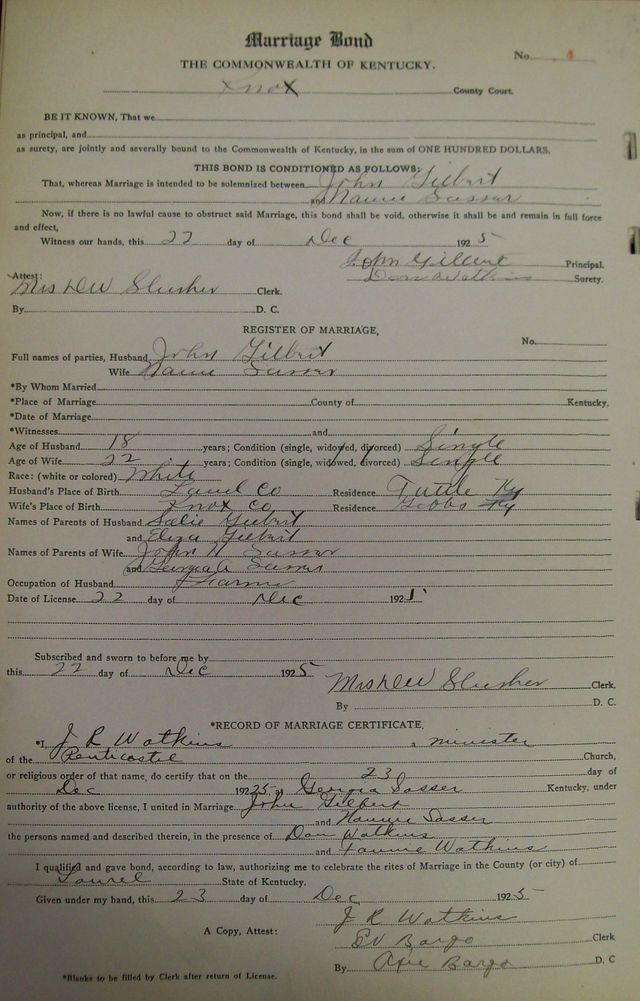 Marriage Bond
No. 4
THE COMMONWEALTH OF KENTUCKY.
Knox County Court.
BE IT KNOWN, That we
as principal, and
as surety, are jointly and severally bound to the Commonwealth of Kentucky, in the sum of ONE HUNDRED DOLLARS.
THIS BOND IS CONDITIONED AS FOLLOWS:
That, whereas Marriage is intended to be solemnized between John Gilbert
and Nannie Sasser
Now, if there is no lawful cause to obstruct said Marriage, this bond shall be void, otherwise it shall be and remain in full force
and effect,
Witness our hands, this 22 day of Dec 1925
John Gilbert Principal.
Don Watkins Surety.
Attest:
Mrs DW Slusher Clerk.
By D. C.
REGISTER OF MARRIAGE,
No.
Full names of parties, Husband John Gilbert
Wife Nannie Sasser
*By Whom Married
*Place of Marriage County of Kentucky.
*Date of Marriage
*Witnesses and
Age of Husband 18 years; Condition (single, widowed, divorced) Single
Age of Wife 22 years; Condition (single, widowed, divorced) Single
Race: (white or colored) White
Husband's Place of Birth Laurel Co Residence Tuttle Ky
Wife's Place of Birth Knox Co Residence Hobbs Ky
Names of Parents of Husband Gilbert
and Eliza Gilbert
Names of Parents of Wife John H Sasser
and Georgia A Sasser
Occupation of Husband Farmer
Date of License 22 day of Dec 1925
Subscribed and sworn to before me by
this 22 day of Dec 1925
Mrs DW Slusher Clerk.
By D. C.
*RECORD OF MARRIAGE CERTIFICATE.
*I, J R Watkins, a minister
of the Penticostel Church,
or religious order of that name, do certify that on the 23 day of
Dec 1925 at Georgia Sasser Kentucky, under
authority of the above license, I united in Marriage John Gilbert
and Nannie Sasser
the persons named and described therein, in the presence of Dan Watkins
and Fannie Watkins
I qualified and gave bond, according to law, authorizing me to celebrate the rites of Marriage in the County (or city) of
Laurel State of Kentucky.
Given under my hand, this 23 day of Dec 1925
J R Watkins
A Copy, Attest: Ed Bargo Clerk
By Bargo D. C
*Blanks to be filled by Clerk after return of License.